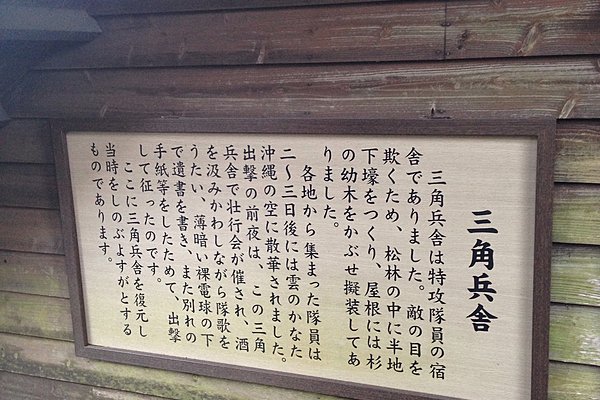 三角兵舎
三角兵舎は特攻隊員の宿
舎でありました。敵の目を
欺くため、松林の中に半地
下壕をつくり、屋根には杉
の幼木をかぶせ擬装してあ
りました。
各地から集まった隊員は
二～三日後には雲のかなた
沖縄の空に散華されました。
出撃の前夜は、この三角
兵舎で壮行会が催され、酒
を汲みかわしながら隊歌を
うたい、薄暗い裸電球の下
で遺書を書き、また別れの
手紙等をしたためて、出撃
して征ったのです。
ここに三角兵舎を復元し
当時をしのぶよすがとする
ものであります。